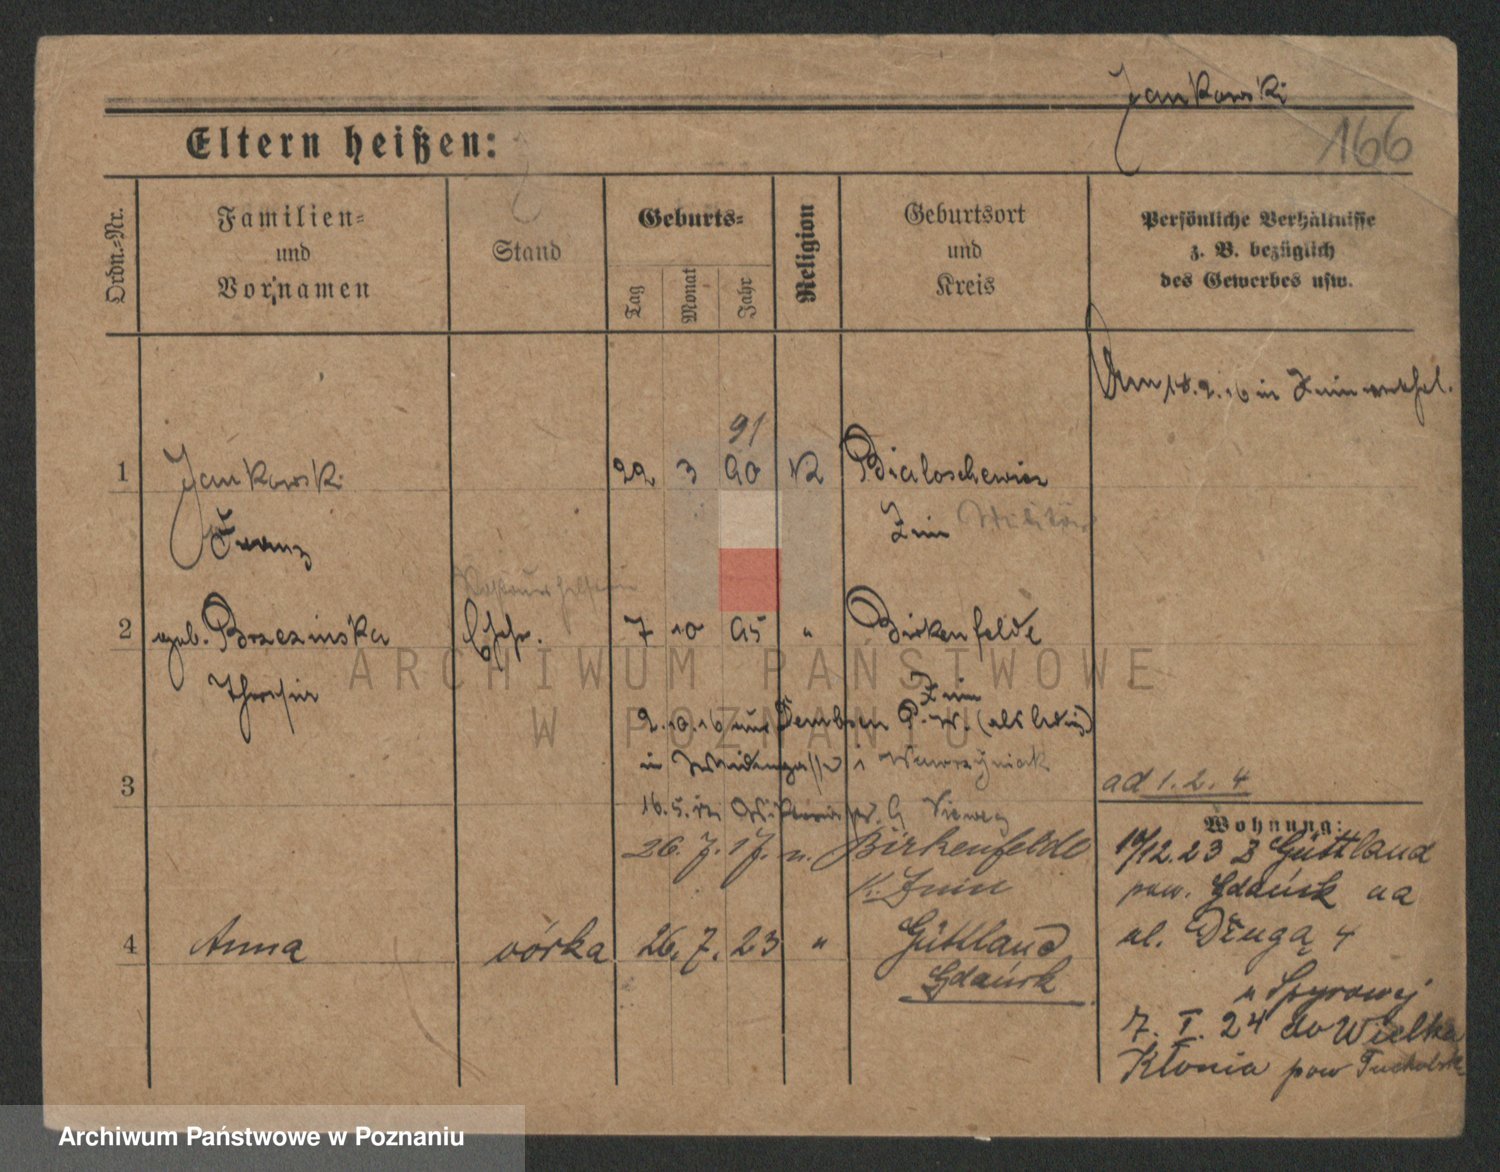 Jankowski
166
Eltern heißen:
Ordn.-Nr.
Familien-
und
Vornamen
Stand
Geburts-
Tag
Monat
Jahr
Religion
Geburtsort
und
Kreis
Persönliche Verhältnisse
z. B. bezüglich
des Gewerbes usw.
18.9.16 in Znin
91
1 Jankowski 22 3 90 K Bialoschewin
Franz Znin Militär
2 geb. Brzezinska Ehefr. 7 10 95 " Birkenfelde
Theresie Znin
2.10.16 Dembsen
in
3
16.5.
ad 1. 2. 4
Wohnung:
26. 7. 17. n. Birkenfelde
K. Znin
12.23 z Güttland
pow. Gdańsk na
ul. Długą 4
4 Anna córka 26. 7. 23 " Güttland
Gdańsk
u Spyrowej
7. I. 24 do Wielka
Kłonia pow Tucholski
ARCHIWUM PAŃSTWOWE
W POZNANIU
Archiwum Państwowe w Poznaniu